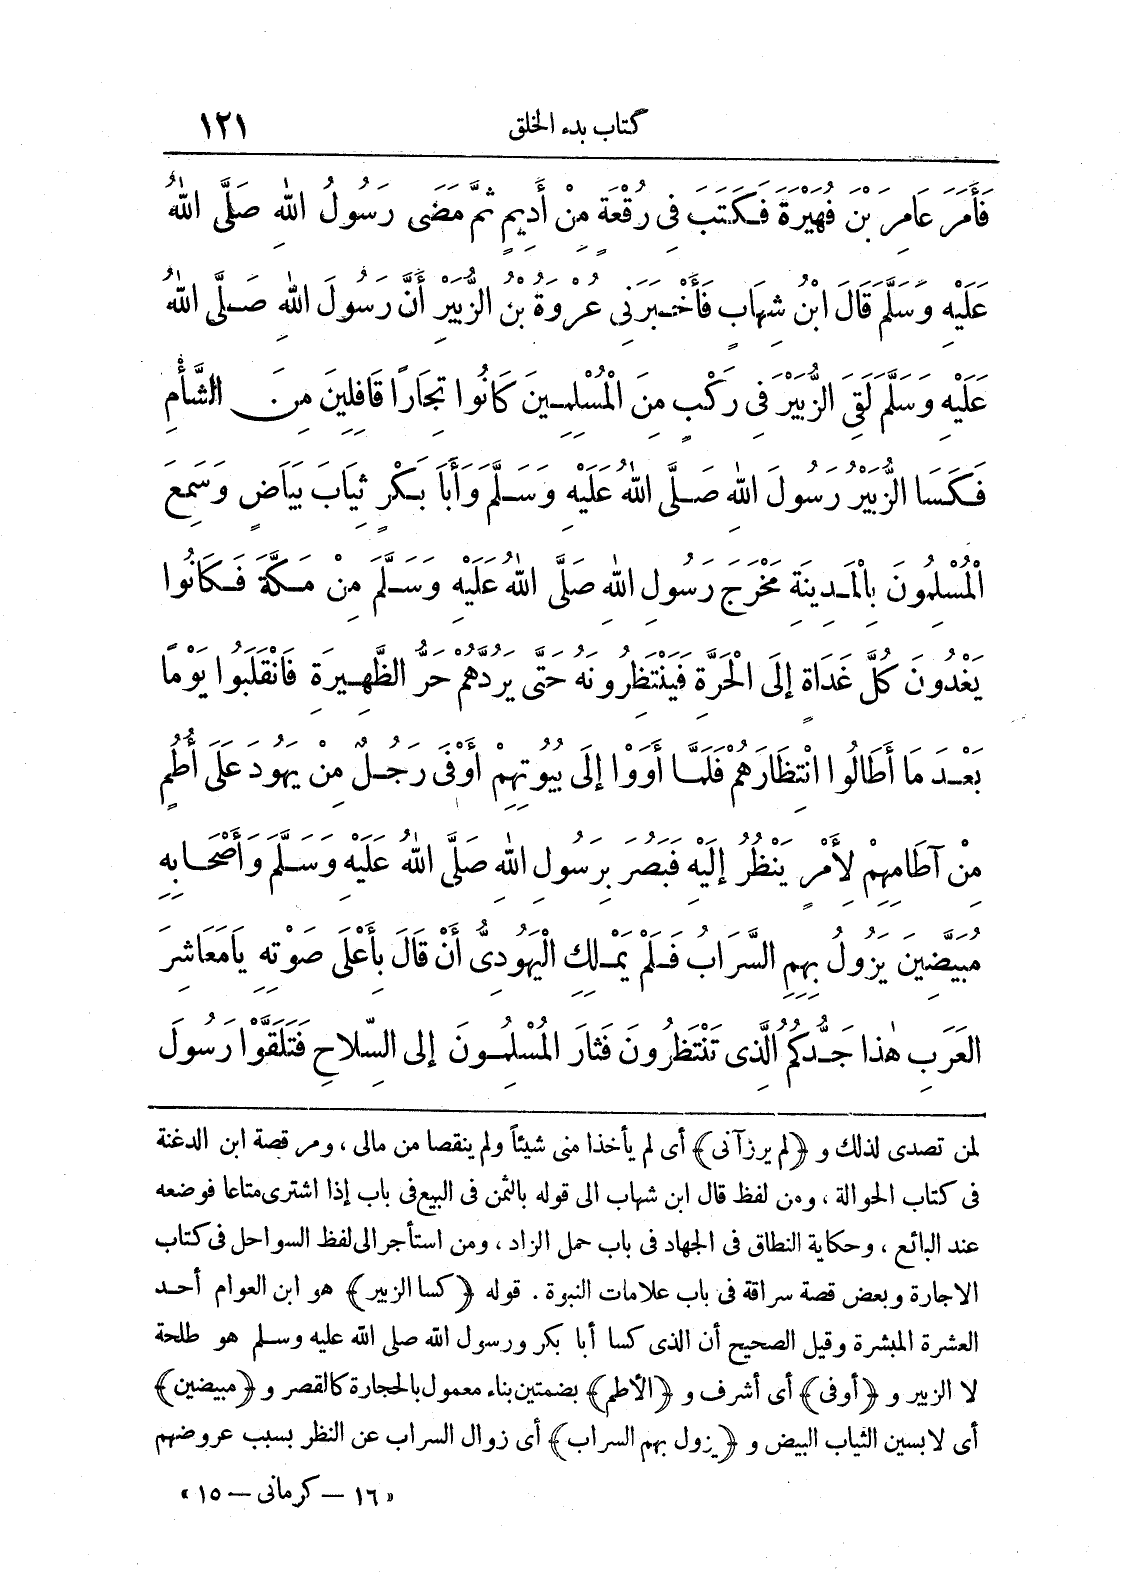 كتاب بدء الخلق
١٢١
فَأَمَرَ عَامِرَ بْنَ فُهَيْرَةَ فَكَتَبَ فِي رُقْعَةٍ مِنْ أَدِيمٍ ثُمَّ مَضَى رَسُولُ اللهِ صَلَّى اللهُ
عَلَيْهِ وَسَلَّمَ قَالَ ابْنُ شِهَابٍ فَأَخْبَرَنِي عُرْوَةُ بْنُ الزُّبَيْرِ أَنَّ رَسُولَ اللهِ صَلَّى اللهُ
عَلَيْهِ وَسَلَّمَ لَقِيَ الزُّبَيْرَ فِي رَكْبٍ مِنَ الْمُسْلِمِينَ كَانُوا تِجَارًا قَافِلِينَ مِنَ الشَّأْمِ
فَكَسَا الزُّبَيْرُ رَسُولَ اللهِ صَلَّى اللهُ عَلَيْهِ وَسَلَّمَ وَأَبَا بَكْرٍ ثِيَابَ بَيَاضٍ وَسَمِعَ
الْمُسْلِمُونَ بِالْمَدِينَةِ مَخْرَجَ رَسُولِ اللهِ صَلَّى اللهُ عَلَيْهِ وَسَلَّمَ مِنْ مَكَّةَ فَكَانُوا
يَغْدُونَ كُلَّ غَدَاةٍ إِلَى الْحَرَّةِ فَيَنْتَظِرُونَهُ حَتَّى يَرُدَّهُمْ حَرُّ الظَّهِيرَةِ فَانْقَلَبُوا يَوْمًا
بَعْدَ مَا أَطَالُوا انْتِظَارَهُمْ فَلَمَّا أَوَوْا إِلَى بُيُوتِهِمْ أَوْفَى رَجُلٌ مِنْ يَهُودَ عَلَى أُطُمٍ
مِنْ آطَامِهِمْ لِأَمْرٍ يَنْظُرُ إِلَيْهِ فَبَصُرَ بِرَسُولِ اللهِ صَلَّى اللهُ عَلَيْهِ وَسَلَّمَ وَأَصْحَابِهِ
مُبَيَّضِينَ يَزُولُ بِهِمِ السَّرَابُ فَلَمْ يَمْلِكِ الْيَهُودِيُّ أَنْ قَالَ بِأَعْلَى صَوْتِهِ يَامَعَاشِرَ
العَرَبِ هٰذَا جَدُّكُمُ الَّذِي تَنْتَظِرُونَ فَثَارَ الْمُسْلِمُونَ إِلَى السِّلَاحِ فَتَلَقَّوْا رَسُولَ
لمن تصدى لذلك و ﴿لم يرزآنى﴾ أى لم يأخذا منى شيئاً ولم ينقصا من مالى ، ومر قصة ابن الدغنة
فى كتاب الحوالة ، ومن لفظ قال ابن شهاب الى قوله بالثمن فى البيع فى باب إذا اشترى متاعا فوضعه
عند البائع ، وحكاية النطاق فى الجهاد فى باب حمل الزاد ، ومن استأجر الى لفظ السواحل فى كتاب
الاجارة وبعض قصة سراقة فى باب علامات النبوة . قوله ﴿كسا الزبير﴾ هو ابن العوام أحد
العشرة المبشرة وقيل الصحيح أن الذى كسا أبا بكر ورسول الله صلى الله عليه وسلم هو طلحة
لا الزبير و ﴿أوفى﴾ أى أشرف و ﴿الأطم﴾ بضمتين بناء معمول بالحجارة كالقصر و ﴿مبيضين﴾
أى لابسين الثياب البيض و ﴿يزول بهم السراب﴾ أى زوال السراب عن النظر بسبب عروضهم
« ١٦ - كرمانى - ١٥ »